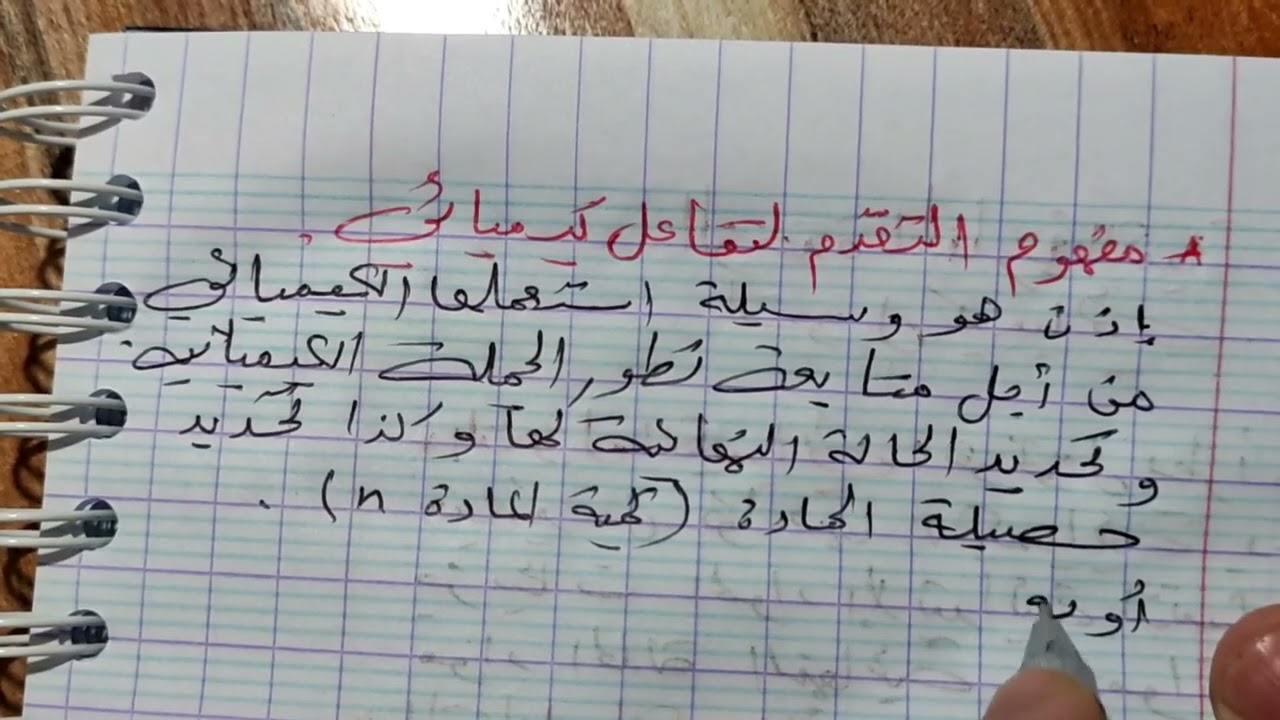 * مفهوم التقدّم لتفاعل كيميائي.
إذن هو وسيلة استعملها الكيميائي
من أجل متابعة تطور الجملة الكيميائية.
وتحديد الحالة النهائية لها وكذا تحديد
حصيلة المادة (كمية المادة n).